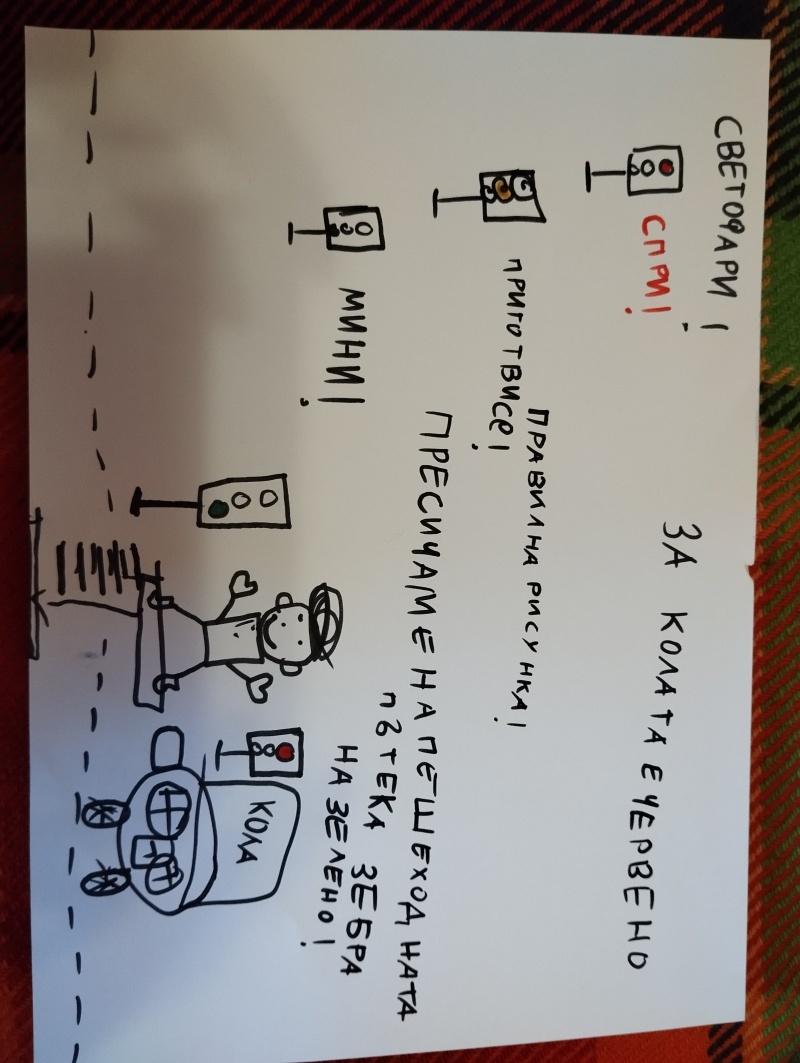 СВЕТОФАРИ!
СПРИ!
ЗА КОЛАТА Е ЧЕРВЕНО
ПРИГОТВИСЕ!
ПРАВИЛНА РИСУНКА!
МИНИ!
ПРЕСИЧАМЕ НА ПЕШЕХОДНАТА
ПЪТЕКА ЗЕБРА
НА ЗЕЛЕНО!
КОЛА